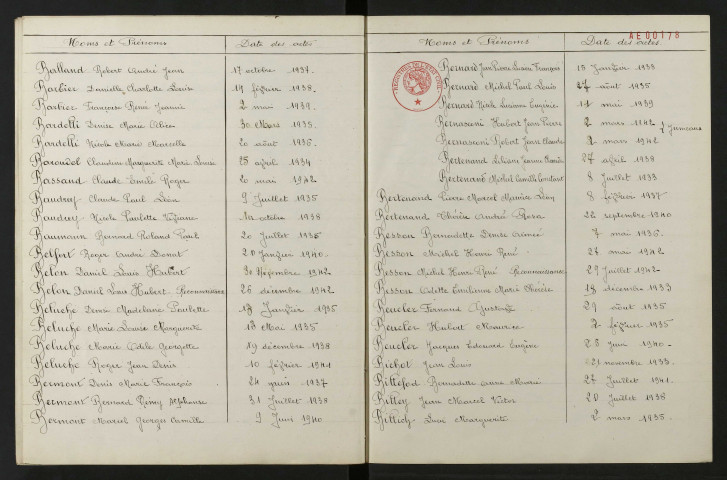 Noms et Prénoms Date des actes
Balland Robert André Jean 17 octobre 1937.
Barbier Danielle Charlotte Louise 19 février 1938.
Barbier Françoise René Jeanne 2 mai 1939.
Bardelli Denise Marie Céline 30 Mars 1935.
Bardelli Nicole Marie Marcelle 20 août 1936.
Claudine Marguerite Marie Louise 25 avril 1934
Bassand Claude Emile Roger 20 mai 1942
Baudrey Claude Paul Léon 9 Juillet 1935
Baudrey Nicole Paulette Viviane octobre 1938
Baumann Bernard Roland Paul 20 Juillet 1936
Belfort Roger André Donat 20 Janvier 1940
Belon Daniel Louis Hubert 20 Novembre 1942
Belon Daniel Louis Hubert Reconnaissance 26 décembre 1942
Beluche Denise Madelaine Paulette 19 Janvier 1935
Beluche Marie Louise Marguerite 13 Mai 1935
Beluche Marie Odile Georgette 19 décembre 1938
Beluche Roger Jean Denis 10 février 1941
Bermont Denis Marie François 24 juin 1937
Bermont Bernard Rémy Alphonse 31 Juillet 1938
Bermont Marcel Georges Camille 9 Juin 1940
AE00178
Noms et Prénoms Date des actes
Bernard Jean Pierre Lucien François 15 Janvier 1933
Bernard Michel Paul Louis 27 août 1935
Bernard Nicole Lucienne Eugénie 11 mai 1939
Bernasconi Hubert Jean Pierre 2 mars 1942
Bernasconi Robert Jean Claude 2 mars 1942 jumeaux
Bertenand Liliane Jeanne 27 avril 1938
Bertenand Michel Camille Constant 8 Juillet 1933
Bertenand Pierre Marcel Maurice Léon 8 février 1937
Bertenand Thérèse Andrée Rosa 22 septembre 1940
Besson Bernadette Denise 7 mai 1936.
Besson Michel Henri René 27 mai 1942
Besson Michel Henri René Reconnaissance 29 Juillet 1942
Besson Odette Emilienne Marie Thérèse 18 décembre 1933
Beucler Fernand Gustave 29 août 1935
Beucler Hubert Maurice 2 février 1935
Beucler Jacques Edouard Eugène 28 juin 1940.
Bichot Jean Louis 21 novembre 1933.
Billefod Bernadette Marie 27 Juillet 1941.
Billey Jean Marcel Victor 20 Juillet 1938
Marguerite 2 mars 1935.